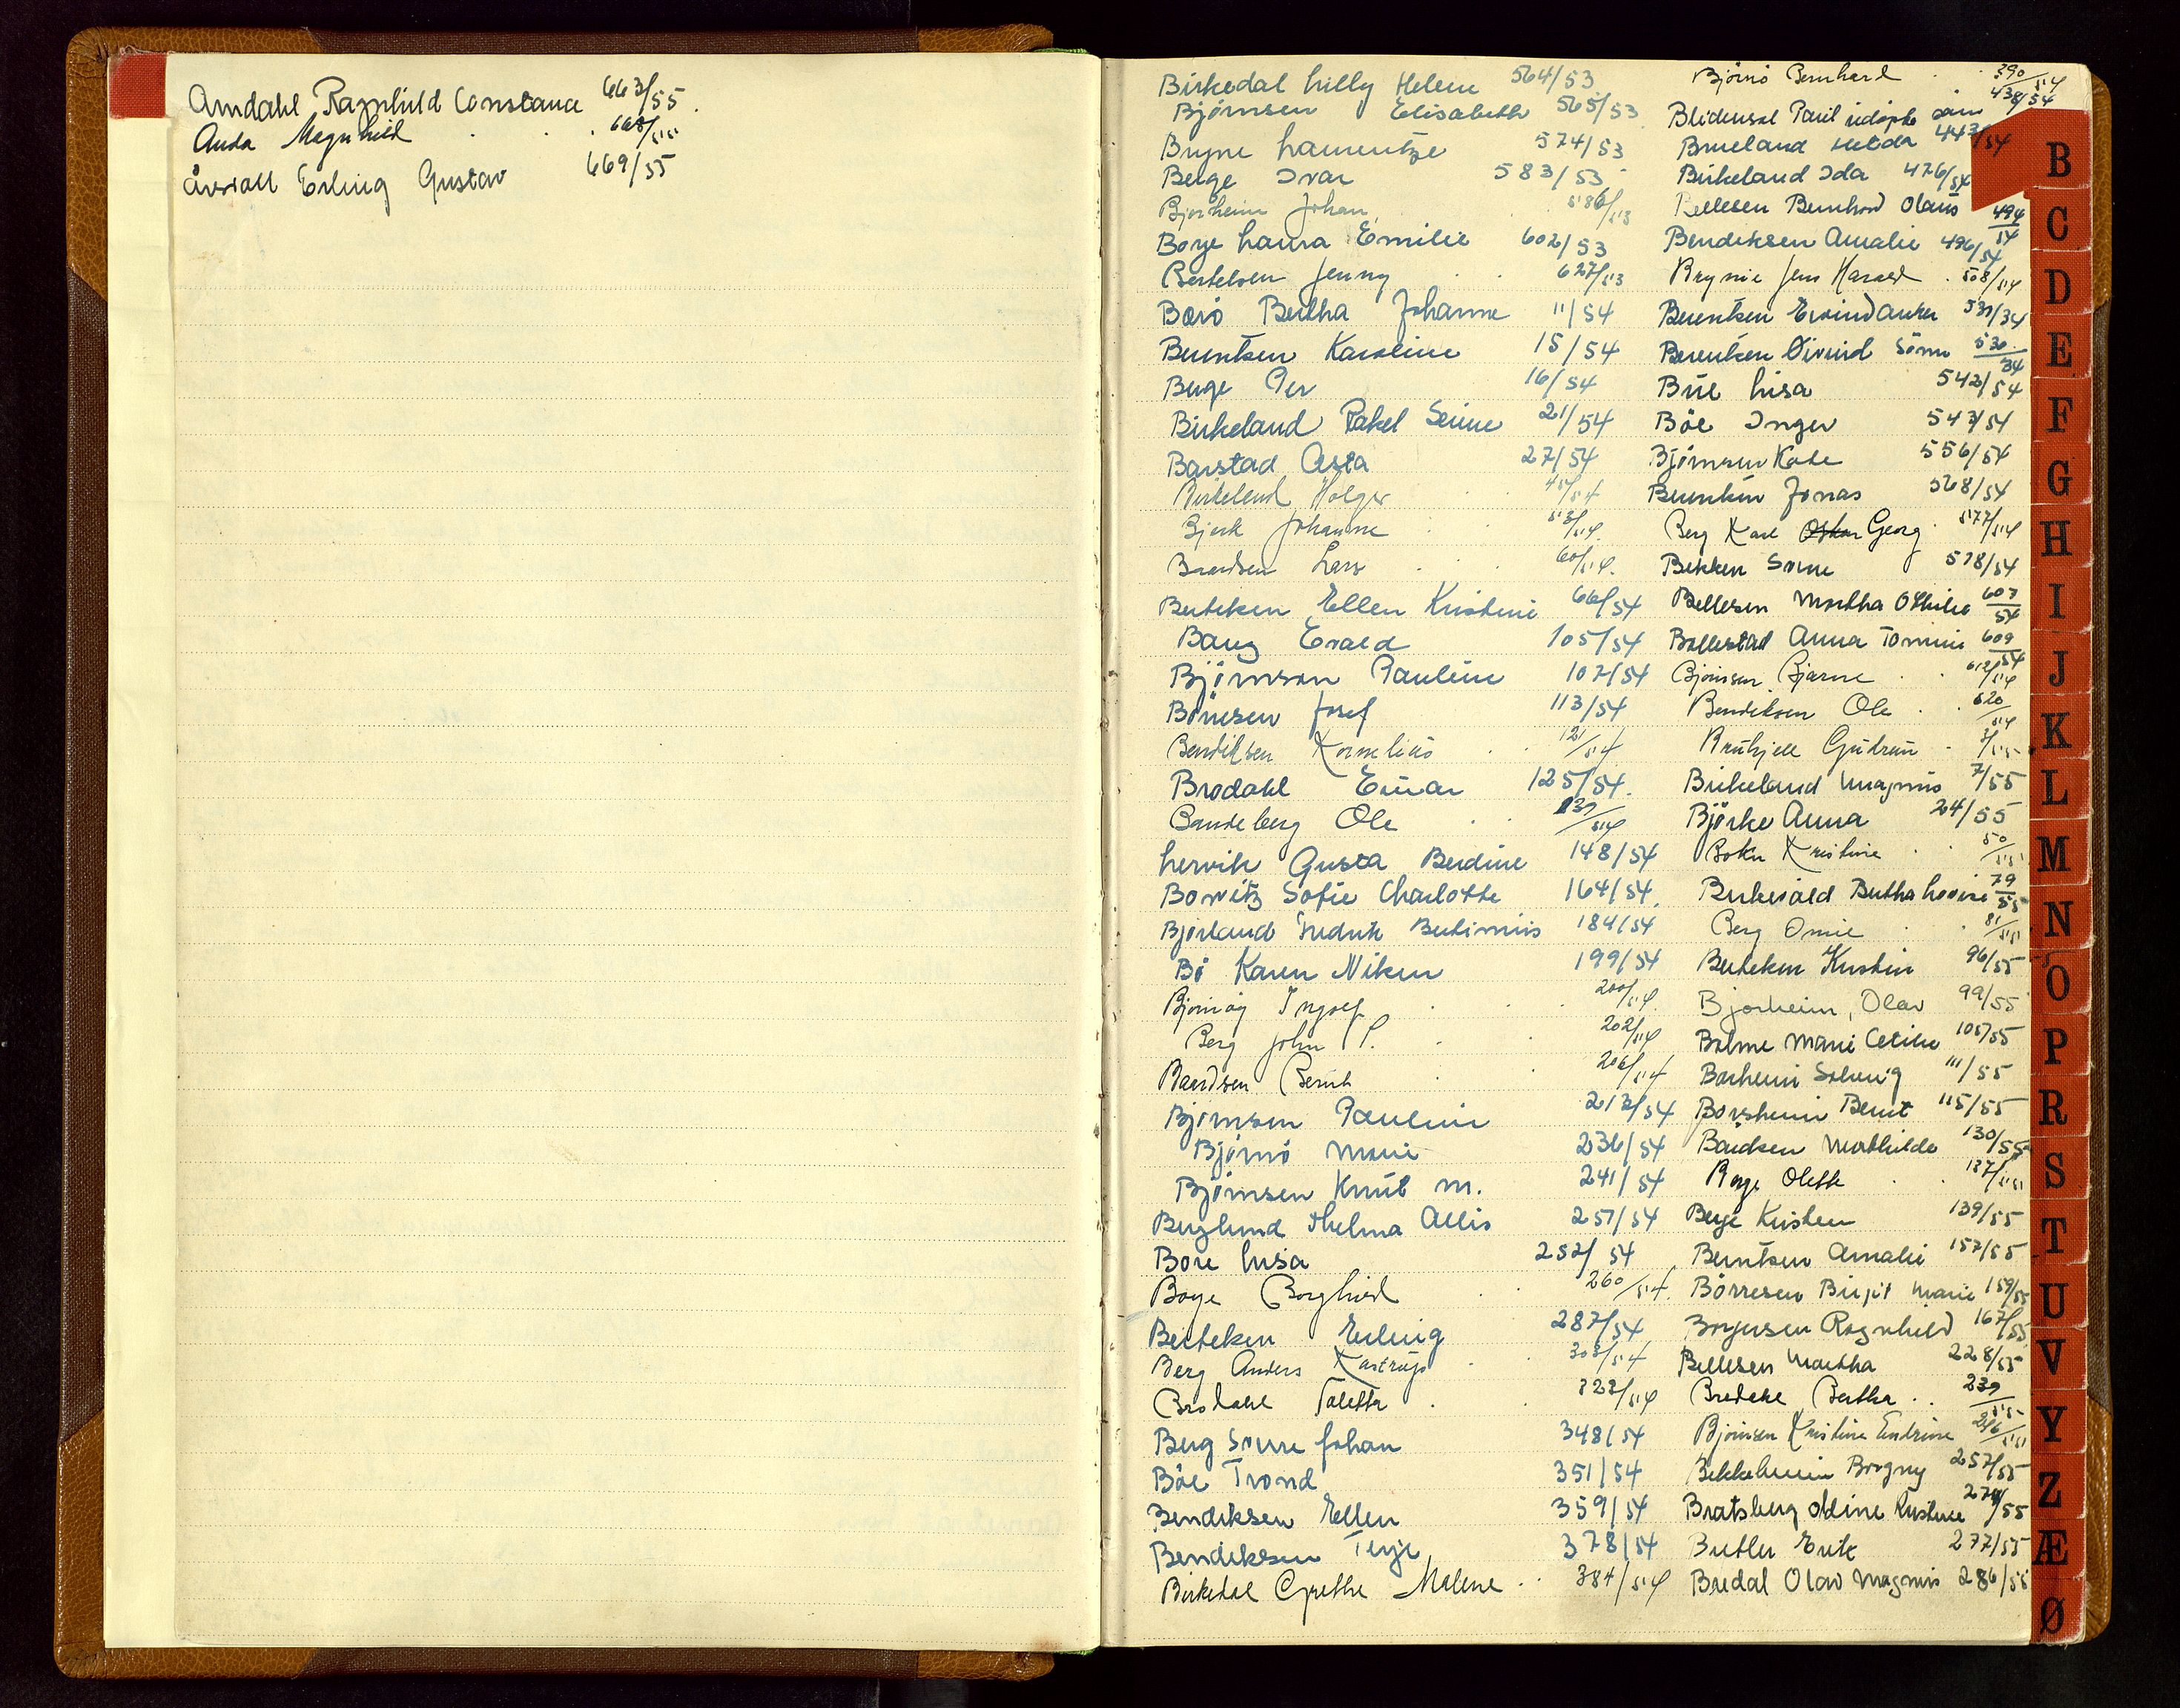 Amdahl Ragnhild Constance 663/55.
Anda Magnhild . . . 668/55
Årvoll Erling Gustav 669/55
Birkedal Lilly Helene 564/53
Björnsen Elisabeth 565/53
Bryne Laurentze 574/53
Berge Ivar 583/53
Bjorheim Johan 586/53
Borge Laura Emilie 602/53
Bertelsen Jenny . . 627/53
Børø Bertha Johanne 11/54
Berntsen Karoline 15/54
Berge Per 16/54
Birkeland Rakel Serine 21/54
Barstad Asta 27/54
Birkeland Holger . . 45/54
Bjerk Johanne . . 53/54
Baardsen Lars . . 60/54.
Bertelsen Ellen Kristine 66/54
Bang Evald 105/54
Björnson Pauline 107/54
Bönesen Josef 113/54
Bendiksen Kornelius . . 121/54
Brodahl Einar 125/54.
Bandeberg Ole . . 139/54
Lervik Gusta Berdine 148/54
Borvitz Sofie Charlotte 164/54.
Bjørland Fredrik Bertinius 184/54
Bö Karen Niken 199/54
Bjornøy Ingolf . . 200/54.
Berg John P. . . 202/54
Baardsen Bernt . . 206/54
Björnsen Pauline 213/54
Björnö Marie 236/54
Björnsen Knut M. 241/54
Berglund Thelma Allis 251/54
Bore Lisa 252/54
Boye Borghild . 260/54.
Bertelsen Erling 287/54
Berg Anders Kastrup . 303/54
Brodahl Tolette . . 323/54
Berg Sverre Johan 348/54
Böe Trond 351/54
Bendiksen Ellen 359/54
Bendiksen Terje 378/54
Birkedal Grethe Malene . . 384/54
Björnö Bernhard . . 390/54
Blidensol Paul udöpte sön 438/54
Brueland Hilda 443/54
Birkeland Ida 476/54
Bellesen Bernhard Olaus 494/54
Bendiksen Amalie 496/54
Brynie Jens Harald . 508/54
Berentsen Eivind Anker 530/54
Berentsen Öivind Sömme 530/54
Bue Lisa 542/54
Böe Inger 543/54
Björnsen Kate 556/54
Berntsen Jonas 568/54
Berg Karl Oskar Georg . 577/54
Bekken Sverre 578/54
Bellesen Martha Othilie 607/54
Ballestad Anna Tomine 609/54
Bjørnsen Bjarne . . 612/54
Bendiksen Ole . . 620/54
Brukjell Gudrun . 3/55
Birkeland Magnus 7/55
Björke Anna 24/55
Bokn Kristine . . 50/55
Birkevold Bertha Lovise 79/55
Berg Omie . . 81/55
Bertelsen Kristin 96/55
Bjorheim, Olav 99/55
Bolme Marie Cecilie 105/55
Borheim Solveig 111/55
Borsheim Bernt 115/55
Baardsen Mathilde 130/55
Borge Olette . 137/55
Berge Kristen 139/55
Berntsen Amalie 157/55
Börresen Birgit Marie 159/55
Borgersen Ragnhild 167/55
Bellesen Martha 228/55
Bredeke Bertha . . 239/55
Bjørnsen Kristine Endrine 246/55
Bekkeheien Borgny 257/55
Bratsberg Oline Kristine 274/55
Butler Erik 277/55
Bredal Olav Magnus 286/55
B
C
D
E
F
G
H
I
J
K
L
M
N
O
P
R
S
T
U
V
Y
Z
Æ
Ø